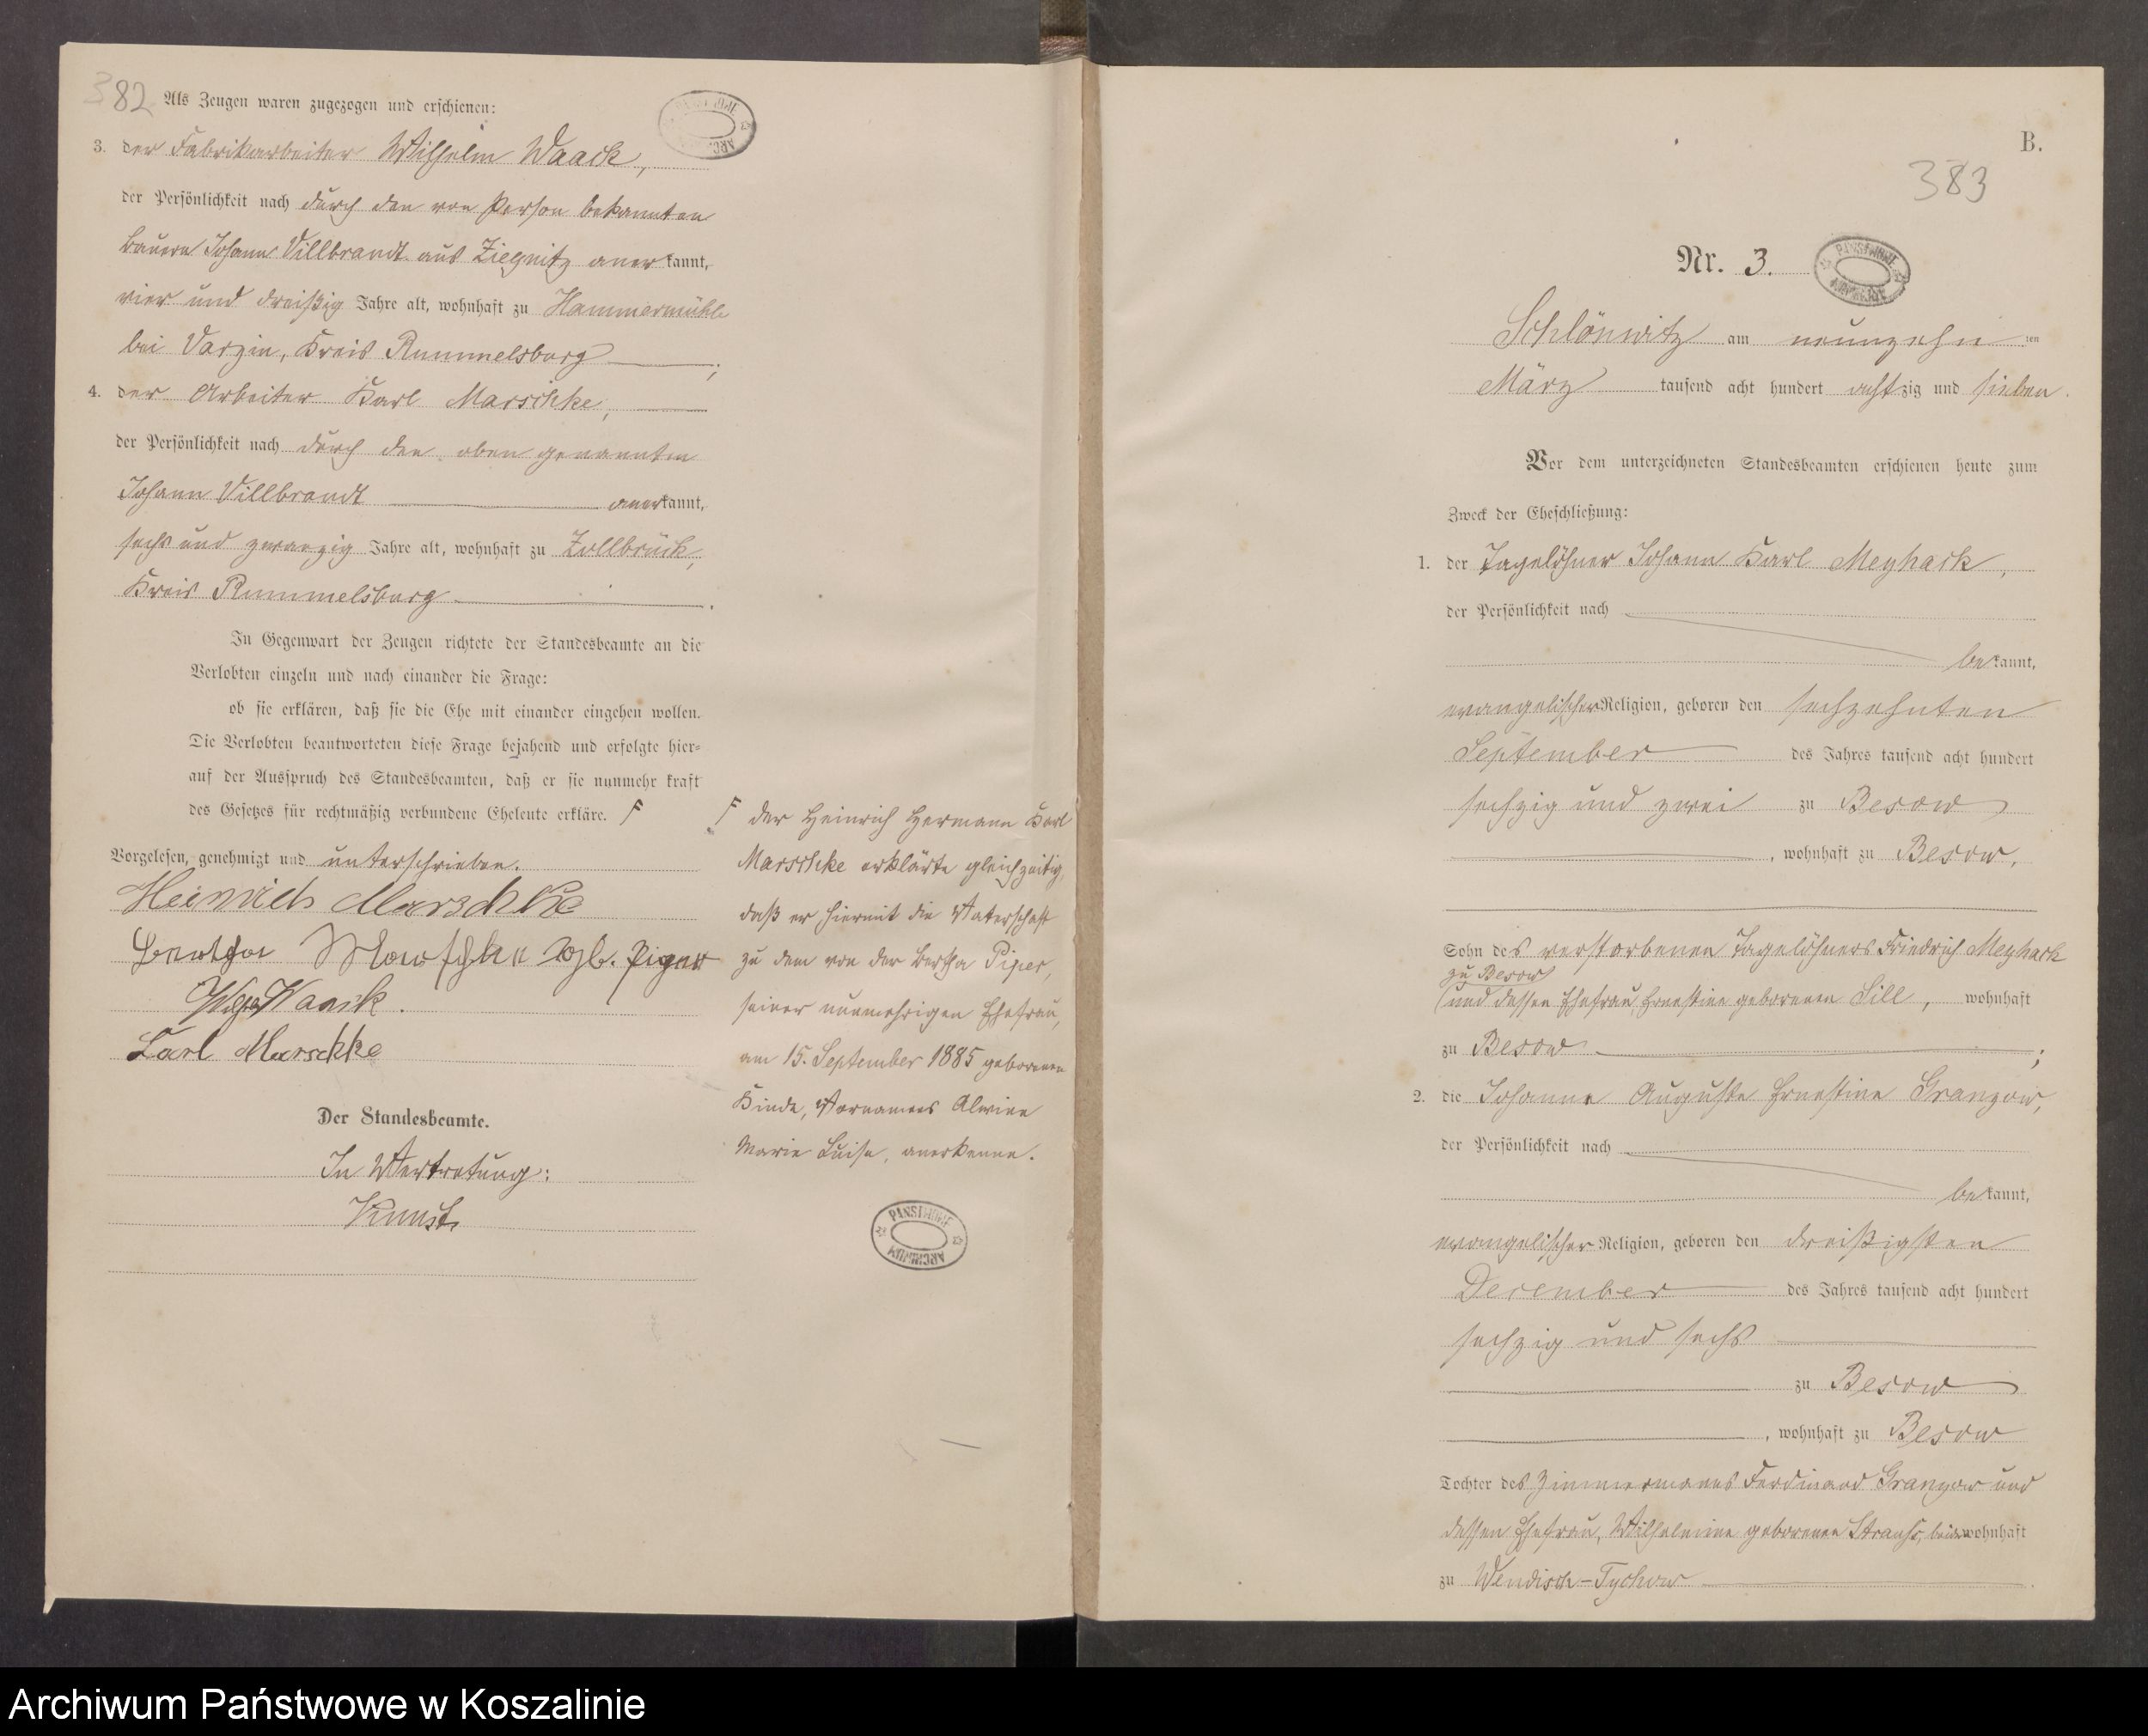 382
Als Zeugen waren zugezogen und erschienen:
3. der Fabrikarbeiter Wilhelm Waack,
der Persönlichkeit nach durch den von Person bekannten
Bauern Johann Villbrandt aus Ziegnitz anerkannt,
vier und dreißig Jahre alt, wohnhaft zu Hammermühle
bei Varzin, Kreis Rummelsburg;
4. der Arbeiter Karl Marschke,
der Persönlichkeit nach durch den oben genannten
Johann Villbrandt anerkannt,
sechs und zwanzig Jahre alt, wohnhaft zu Zollbrück,
Kreis Rummelsburg.
In Gegenwart der Zeugen richtete der Standesbeamte an die
Verlobten einzeln und nach einander die Frage:
ob sie erklären, daß sie die Ehe mit einander eingehen wollen.
Die Verlobten beantworteten diese Frage bejahend und erfolgte hier-
auf der Ausspruch des Standesbeamten, daß er sie nunmehr kraft
des Gesetzes für rechtmäßig verbundene Eheleute erkläre. F
Vorgelesen, genehmigt und unterschrieben.
Heinrich Marschke
Bertha Marschke geb. Piper
Waack.
Karl Marschke
Der Standesbeamte.
In Vertretung:
Kunst
F der Heinrich Hermann Karl
Marschke erklärte gleichzeitig,
daß er hiermit die Vaterschaft
zu dem von der Bertha Piper,
seiner nunmehrigen Ehefrau,
am 15. September 1885 geborenen
Kinde, Vornamens Alwine
Marie Luise, anerkenne.
PANSTWOWE ARCHIWUM
B.
383
Nr. 3.
PANSTWOWE ARCHIWUM
Schlönwitz am neunzehn ten
März tausend acht hundert achtzig und sieben.
Vor dem unterzeichneten Standesbeamten erschienen heute zum
Zweck der Eheschließung:
1. der Tagelöhner Johann Karl Meyhack,
der Persönlichkeit nach
bekannt,
evangelischer Religion, geboren den sechzehnten
September des Jahres tausend acht hundert
sechzig und zwei zu Besow
, wohnhaft zu Besow,
Sohn des verstorbenen Tagelöhners Friedrich Meyhack
zu Besow
und dessen Ehefrau, Ernestine geborenen Sill, wohnhaft
zu Besow;
2. die Johanne Auguste Ernestine Granzow,
der Persönlichkeit nach
bekannt,
evangelischer Religion, geboren den dreißigsten
December des Jahres tausend acht hundert
sechzig und sechs
zu Besow
, wohnhaft zu Besow
Tochter des Zimmermanns Ferdinand Granzow und
dessen Ehefrau, Wilhelmine geborenen Strauß, beide wohnhaft
zu Wendisch-Tychow.
Archiwum Państwowe w Koszalinie